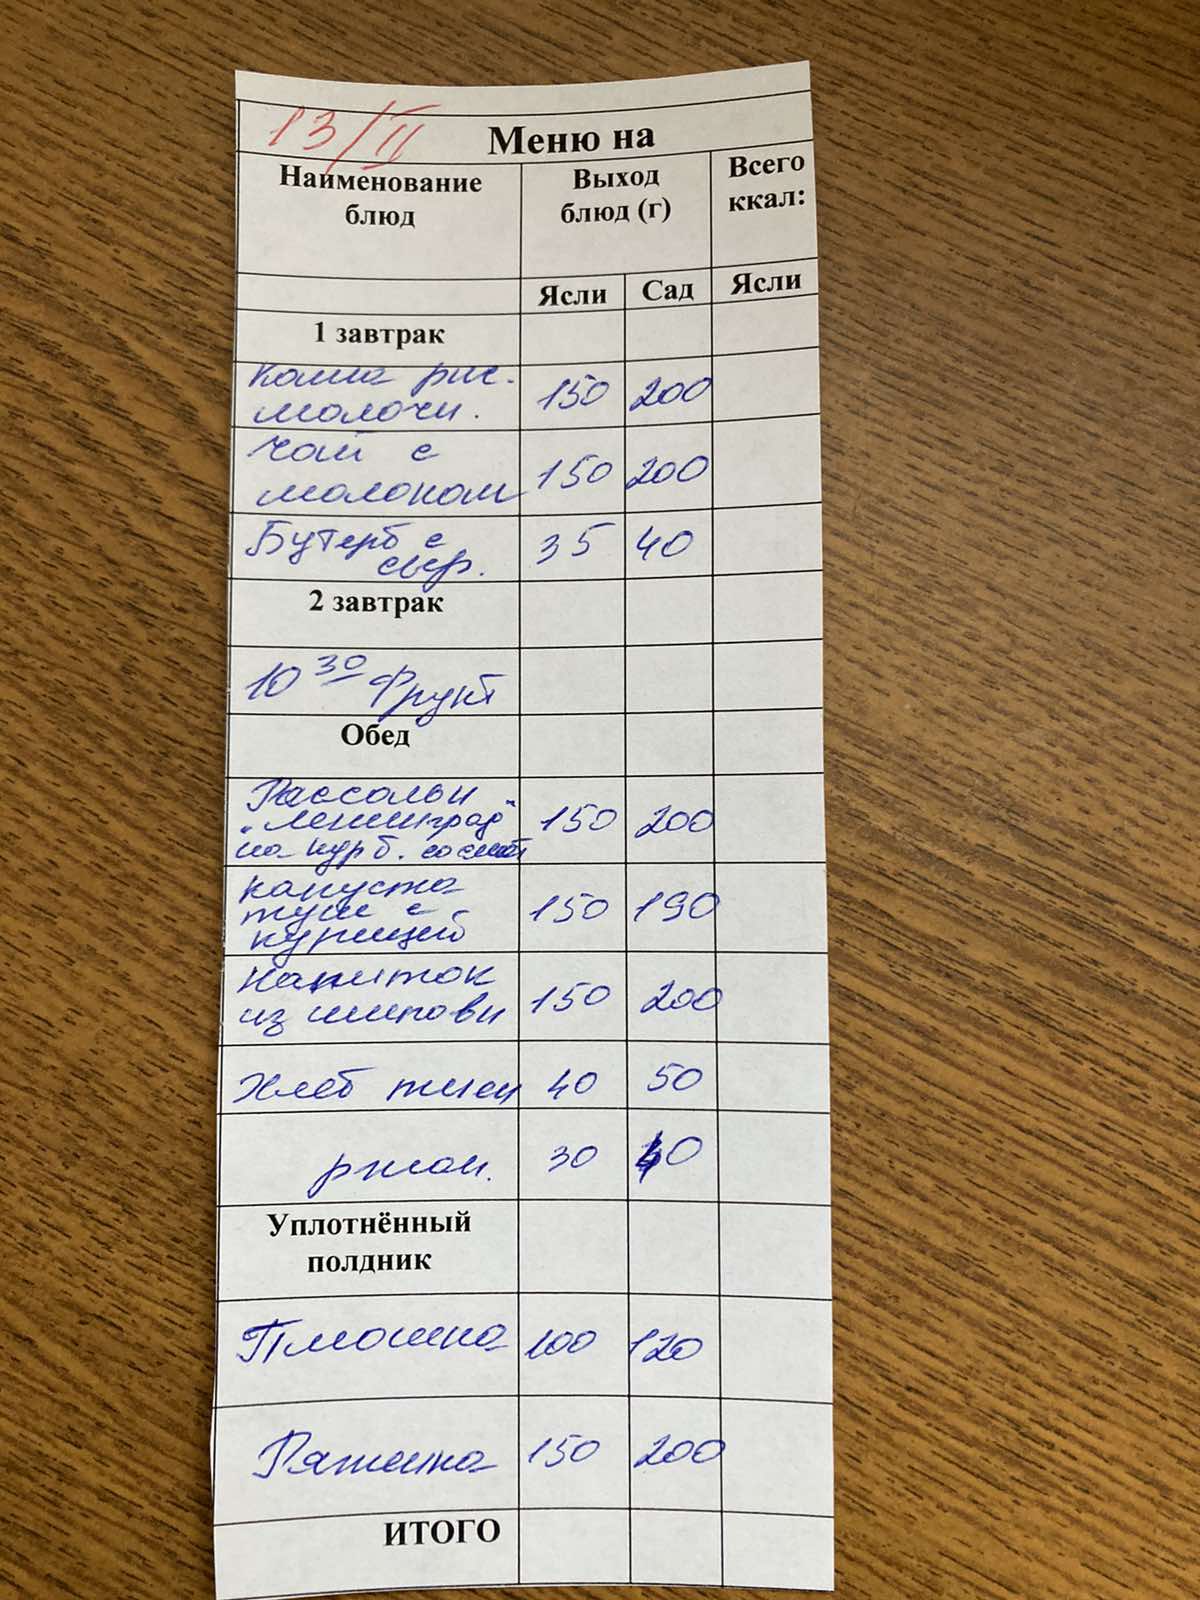 13/II Меню на
Наименование блюд Выход блюд (г) Всего ккал:
Ясли Сад Ясли
1 завтрак
Каша рис.
молочн. 150 200
Чай с
молоком 150 200
Бутерб с
сыр. 35 40
2 завтрак
10 30 Фрукт
Обед
Рассольн
"Ленинград"
на кур б. со смет 150 200
Капуста
туш с
курицей 150 190
Напиток
из шиповн 150 200
Хлеб пшен 40 50
ржан. 30 40
Уплотнённый
полдник
Плюшка 100 120
Ряженка 150 200
ИТОГО